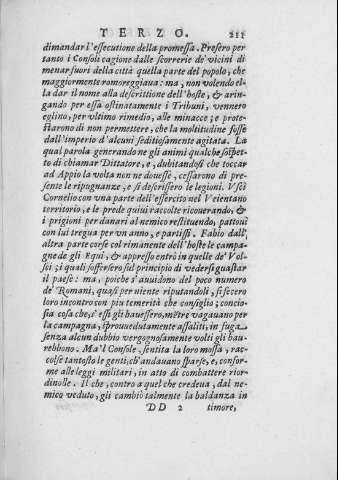 TERZO. 211
dimandar l'essecutione della promessa. Presero per
tanto i Consoli cagione dalle scorrerie de' vicini di
menar fuori della città quella parte del popolo, che
maggiormente romoreggiaua: ma, non volendo el-
la dar il nome alla descrittione dell'hoste, & arin-
gando per essa ostinatamente i Tribuni, vennero
eglino, per vltimo rimedio, alle minacce; e prote-
starono di non permettere, che la moltitudine fosse
dall'imperio d'alcuni seditiosamente agitata. La
qual parola generando ne gli animi qualche sospet-
to di chiamar Dittatore, e, dubitandosi che toccar
ad Appio la volta non ne douesse, cessarono di pre-
sente le ripugnanze, e si descrissero le legioni. Vscì
Cornelio con vna parte dell'essercito nel Veientano
territorio, e le prede quiui raccolte ricouerando, &
i prigioni per danari al nemico restituendo, pattouì
con lui tregua per vn anno, e partissi. Fabio dall'
altra parte corse col rimanente dell'hoste le campa-
gne de gli Equi, & appresso entrò in quelle de' Vol-
sci; i quali soffersero sul principio di vedersi guastar
il paese: ma, poiche s'auuidono del poco numero
de' Romani, quasi per niente riputandoli, si fecero
loro incontro con piu temerità che consiglio; concio-
sia cosa che, s'essi gli hauessero, mẽtre vagauano per
la campagna, isprouedutamente assaliti, in fuga
senza alcun dubbio vergognosamente volti gli hau-
rebbono. Ma'l Console, sentita la loro mossa, rac-
colse tantosto le genti, ch'andauano sparse, e, confor-
me alle leggi militari, in atto di combattere rior-
dinolle. Il che, contro a quel che credeua, dal ne-
mico veduto, gli cambiò talmente la baldanza in
DD 2 timore,